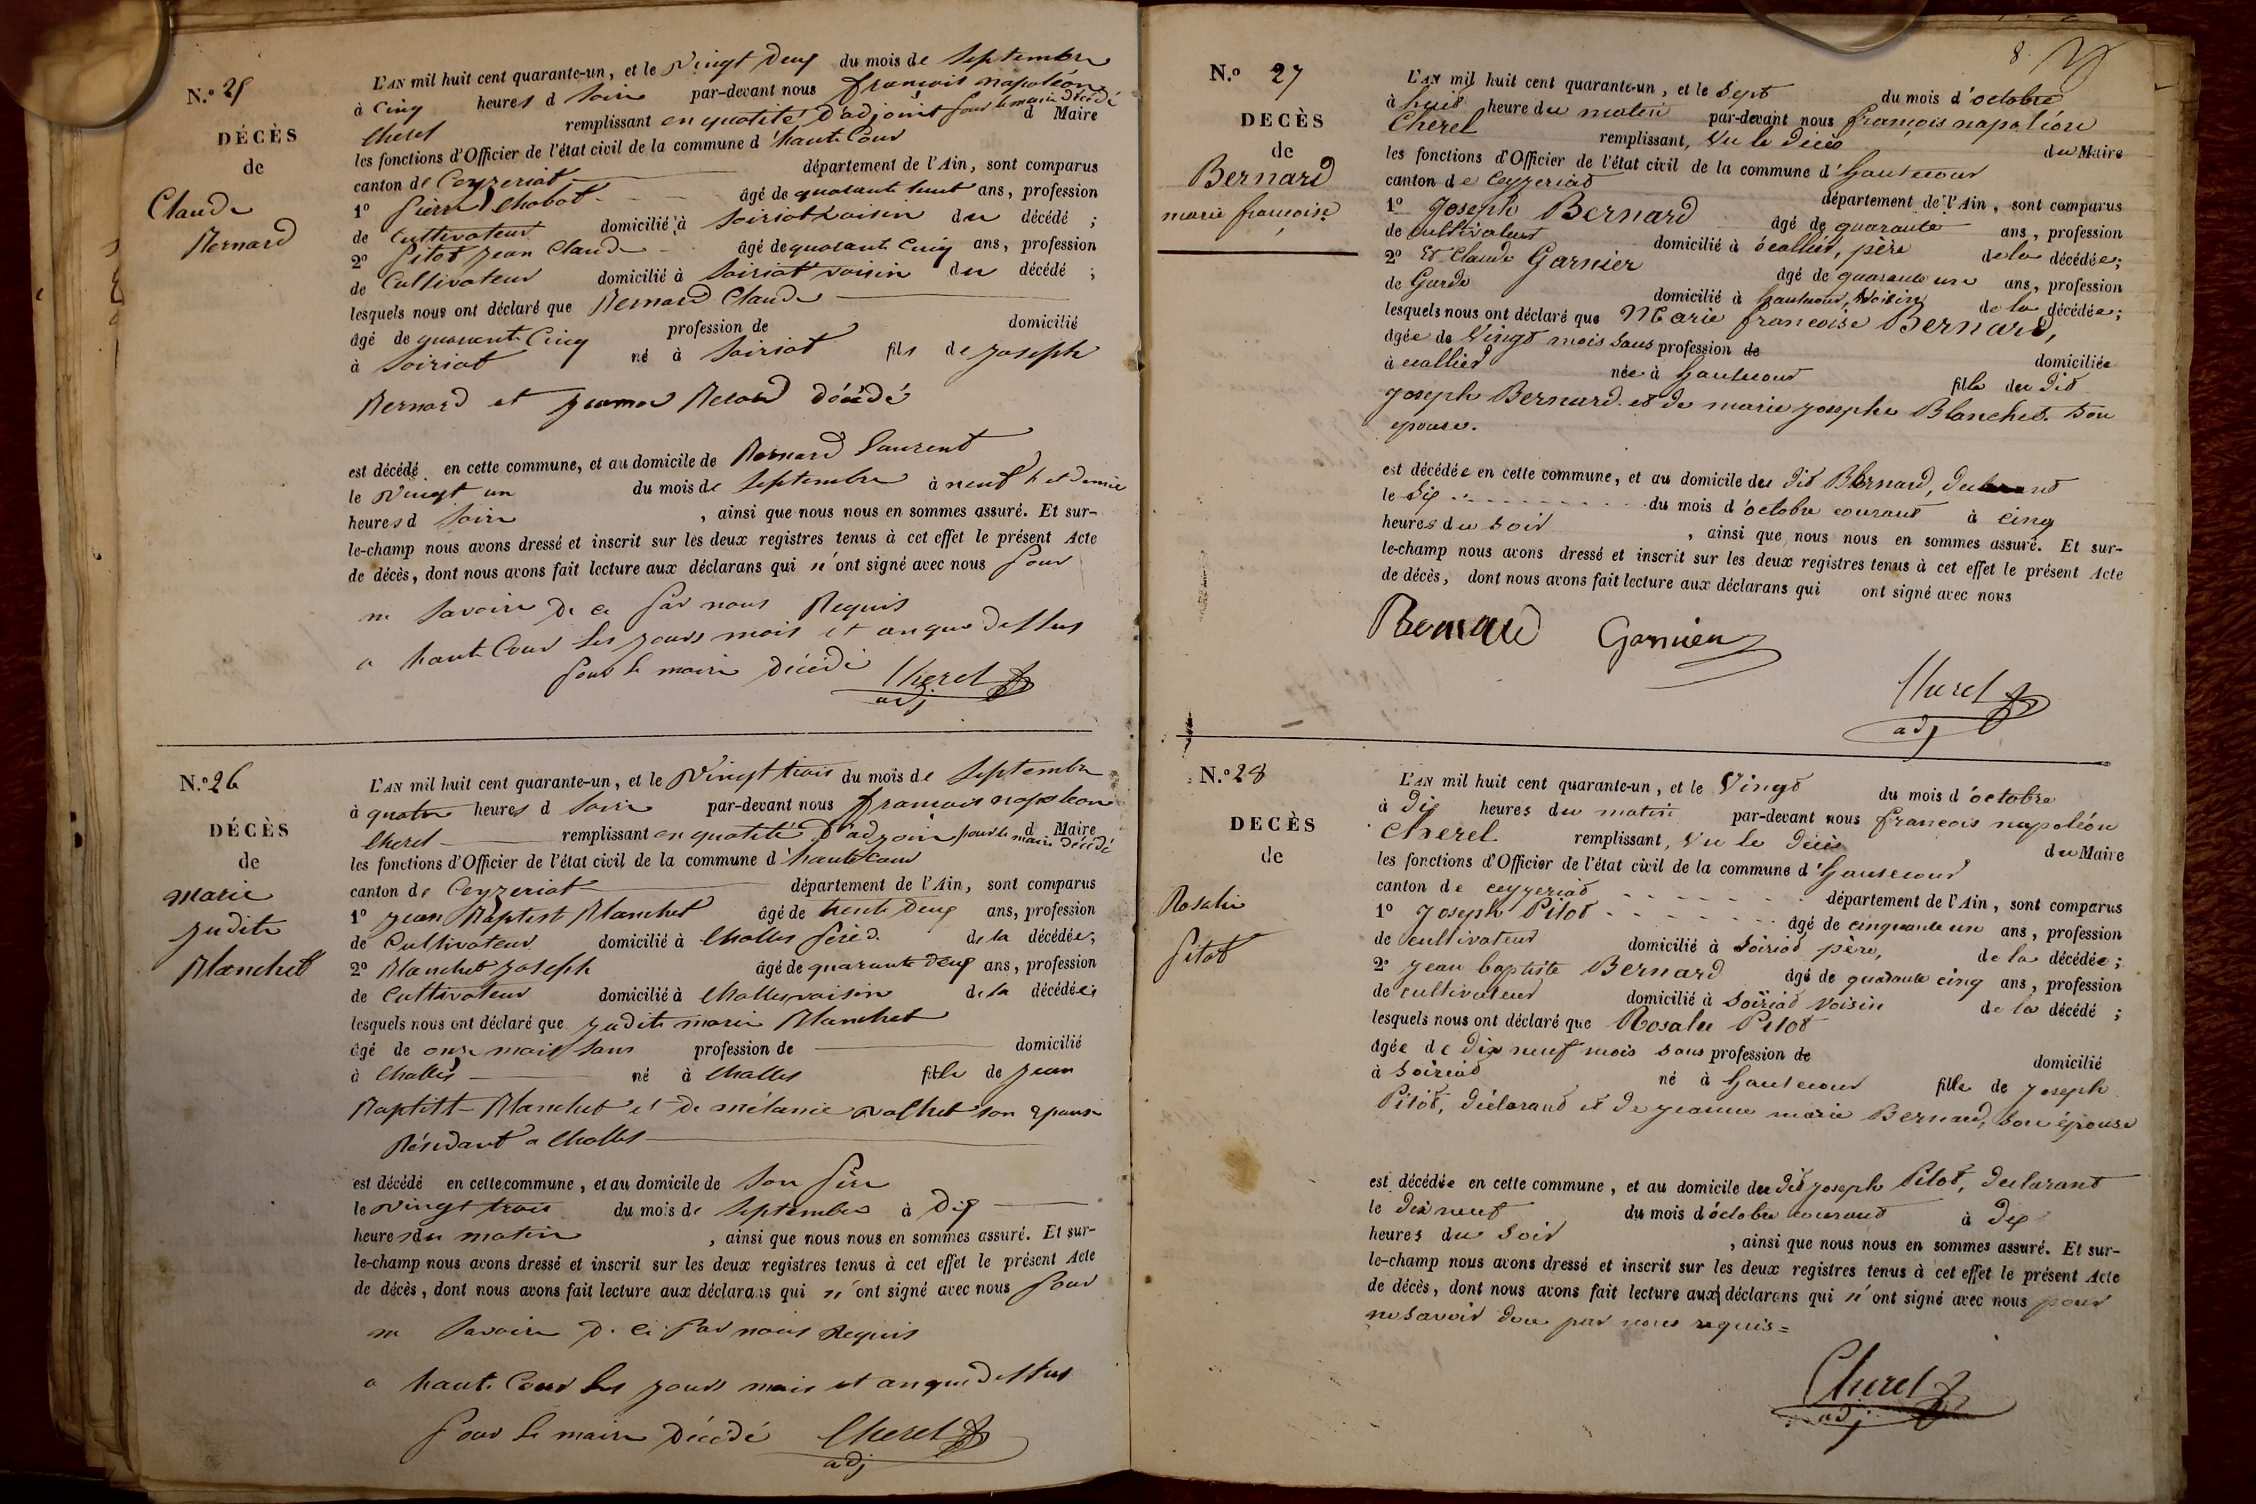 N.° 25
DÉCÈS
de
Claude
Bernard
L'AN mil huit cent quarante-un, et le Vingt Deux du mois de Septembre
à Cinq heures d Soire par-devant nous francois napoléon
Cherel remplissant en quatité D'adjoint pour le maire décédé d Maire
les fonctions d'Officier de l'état civil de la commune d'hautecour
canton de Ceyzeriat département de l'Ain, sont comparus
1° Pierre Chabot âgé de quarante huit ans, profession
de Cultivateur domicilié à Soiriat voisin du décédé ;
2° Pitot jean Claude âgé de quarante Cinq ans, profession
de Cultivateur domicilié à Soiriat voisin du décédé ;
lesquels nous ont déclaré que Bernard Claude
âgé de quarante Cinq profession de domicilié
à Soiriat né à Soiriat fils de joseph
Bernard et décédé
est décédé en cette commune, et au domicile de Bernard Laurent
le Vingt un du mois de Septembre à neuf h et demie
heures d Soire , ainsi que nous nous en sommes assuré. Et sur-
le-champ nous avons dressé et inscrit sur les deux registres tenus à cet effet le présent Acte
de décès, dont nous avons fait lecture aux déclarans qui n'ont signé avec nous pour
ne Savoire De ce par nous Requis
a hautecour Les jours mois et an que Dessus
pour le maire Décédé Cherel
adj
N.° 26
DÉCÈS
de
marie
judite
Blanchet
L'AN mil huit cent quarante-un, et le Vingt trois du mois de Septembre
à quatre heures d Soire par-devant nous francois napoleon
Cherel remplissant en quatité D'adjoin pour le maire décédé d Maire
les fonctions d'Officier de l'état civil de la commune d'hautecour
canton de Ceyzeriat département de l'Ain, sont comparus
1° jean Baptist Blanchet âgé de trente Deux ans, profession
de Cultivateur domicilié à Challes père d. de la décédée;
2° Blanchet joseph âgé de quarante Deux ans, profession
de Cultivateur domicilié à Challes voisin de la décédée;
lesquels nous ont déclaré que judite marie Blanchet
âgé de onze mois sans profession de domicilié
à Challes né à Challes fille de jean
Baptist Blanchet et De mélanie son epouse
Résidant a Challes
est décédé en cette commune, et au domicile de Son père
le Vingt trois du mois de Septembre à Dix
heures du matin , ainsi que nous nous en sommes assuré. Et sur-
le-champ nous avons dressé et inscrit sur les deux registres tenus à cet effet le présent Acte
de décès, dont nous avons fait lecture aux déclarans qui n'ont signé avec nous pour
ne Savoire De ce par nous Requis
a hautecour Les jours mois et an que Dessus
pour le maire Décédé Cherel
adj
8.
N.° 27
DECÈS
de
Bernard
marie françoise
L'AN mil huit cent quarante-un, et le Sept du mois d'octobre
à huit heure du matin par-devant nous françois napoléon
Cherel remplissant, Vu le décès du Maire
les fonctions d'Officier de l'état civil de la commune d'hautecour
canton de Ceyzeriat département de l'Ain, sont comparus
1° Joseph Bernard âgé de quarante ans, profession
de cultivateur domicilié à , père de la décédée;
2° Et Claude Garnier âgé de quarante un ans, profession
de Garde domicilié à hautecour, voisin de la décédée;
lesquels nous ont déclaré que Marie francoise Bernard,
âgée de Vingt mois sans profession de domiciliée
à née à hautecour fille du dit
Joseph Bernard et de marie josephe Blanchet son
epouse.
est décédée en cette commune, et au domicile du dit Bernard,
le Six du mois d'octobre courant à cinq
heures du soir , ainsi que nous nous en sommes assuré. Et sur-
le-champ nous avons dressé et inscrit sur les deux registres tenus à cet effet le présent Acte
de décès, dont nous avons fait lecture aux déclarans qui ont signé avec nous
Bernard Garnier
Cherel
adj
N.° 28
DECÈS
de
Rosalie
Pitot
L'AN mil huit cent quarante-un, et le Vingt du mois d'octobre
à Dix heures du matin par-devant nous francois napoléon
Cherel remplissant, Vu le décès du Maire
les fonctions d'Officier de l'état civil de la commune d'hautecour
canton de ceyzeriat département de l'Ain, sont comparus
1° Joseph Pitot âgé de cinquante un ans, profession
de cultivateur domicilié à Soiriat père, de la décédée;
2° jean baptiste Bernard âgé de quarante cinq ans, profession
de cultivateur domicilié à Soiriat voisin de la décédé ;
lesquels nous ont déclaré que Rosalie Pitot
âgée de dix neuf mois sans profession de domicilié
à Soiriat né à hautecour fille de joseph
Pitot, déclarant et de jeanne marie Bernard, son épouse
est décédée en cette commune, et au domicile du dit joseph Pitot, declarant
le dix neuf du mois d'octobre courant à dix
heures du Soir , ainsi que nous nous en sommes assuré. Et sur-
le-champ nous avons dressé et inscrit sur les deux registres tenus à cet effet le présent Acte
de décès, dont nous avons fait lecture aux déclarans qui n'ont signé avec nous pour
ne savoir de ce par nous requis =
Cherel
adj.